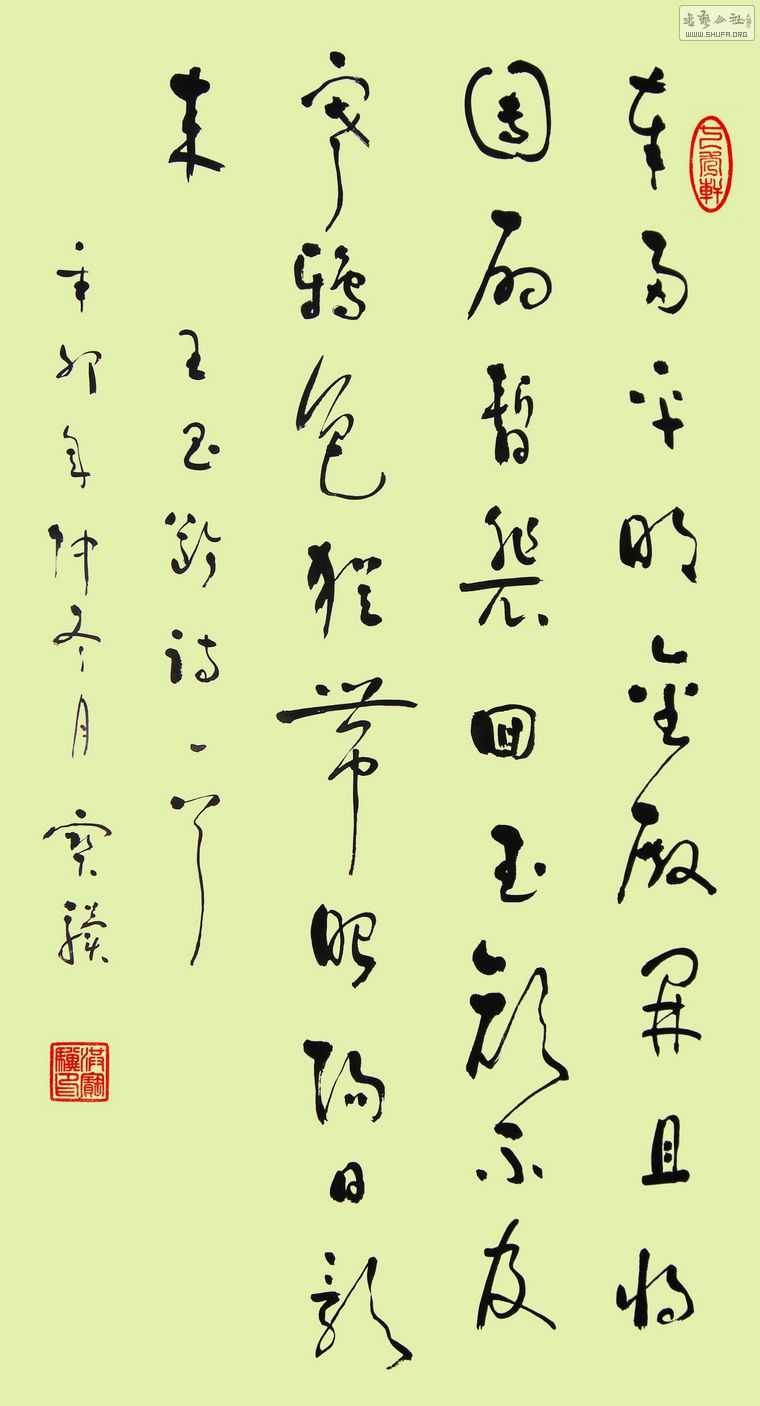 奉帚平明金殿開且將
團扇暫裴回玉顏不及
寒鴉色猶帶昭陽日影
来
王昌齡詩一首
辛卯年仲冬月寶驥
洪寶驥印
書藝公社
WWW.SHUFA.ORG